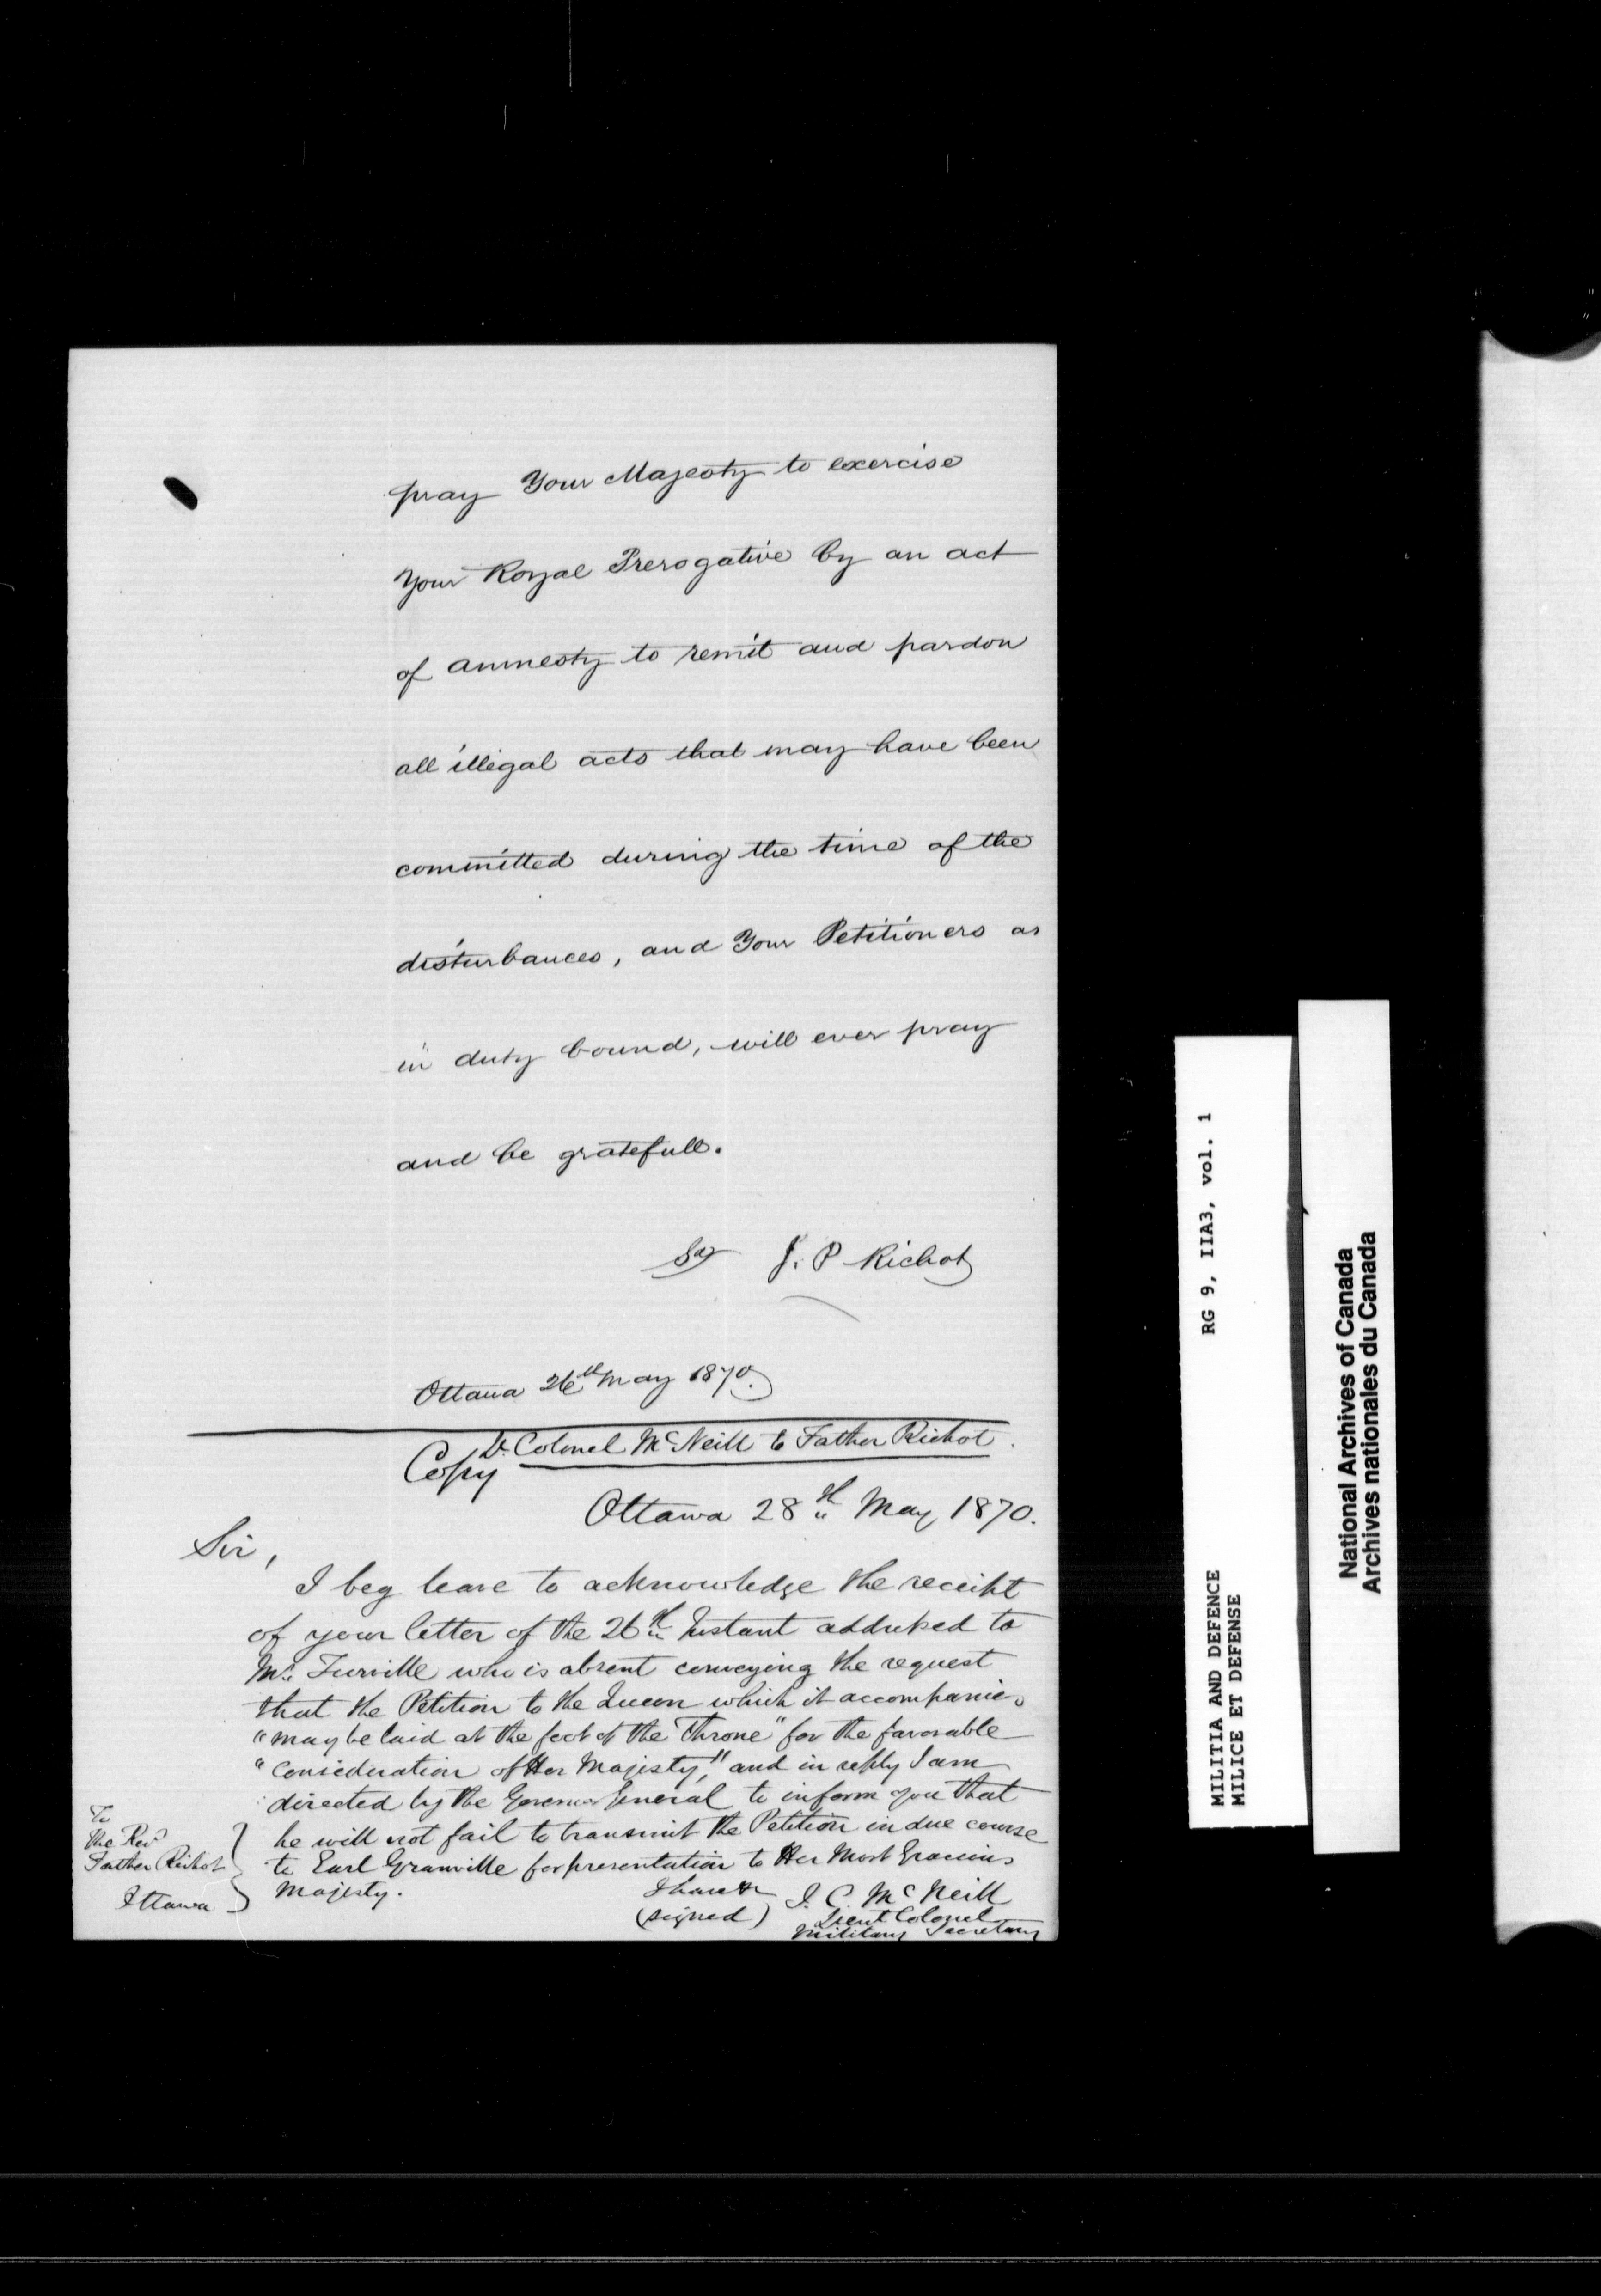 pray Your Majesty to exercise
Your Royal Prerogative by an act
of amnesty to remit and pardon
all illegal acts that may have been
committed during the time of the
disturbances, and Your Petitioners as
in duty bound, will ever pray
and be gratefull.
Sd J. P Richot
Ottawa 26th May 1870.
Copy Lt Colonel McNeill to Father Richot.
Ottawa 28th May 1870.
Sir,
I beg leave to acknowledge the receipt
of your letter of the 26th Instant addressed to
Mr. Turville who is absent conveying the request
that the Petition to the Queen which it accompanies
"may be laid at the foot of the Throne" for the favorable
"consideration of Her Majesty," and in reply I am
directed by the Governor General to inform you that
he will not fail to transmit the Petition in due course
to Earl Granville for presentation to Her Most Gracious
Majesty.
I have &c
(signed) J. C. McNeill
Lieut Colonel
Military Secretary
To
The Revd
Father Richot
Ottawa
RG 9, IIA3, vol. 1
MILITIA AND DEFENCE
MILICE ET DEFENSE
National Archives of Canada
Archives nationales du Canada